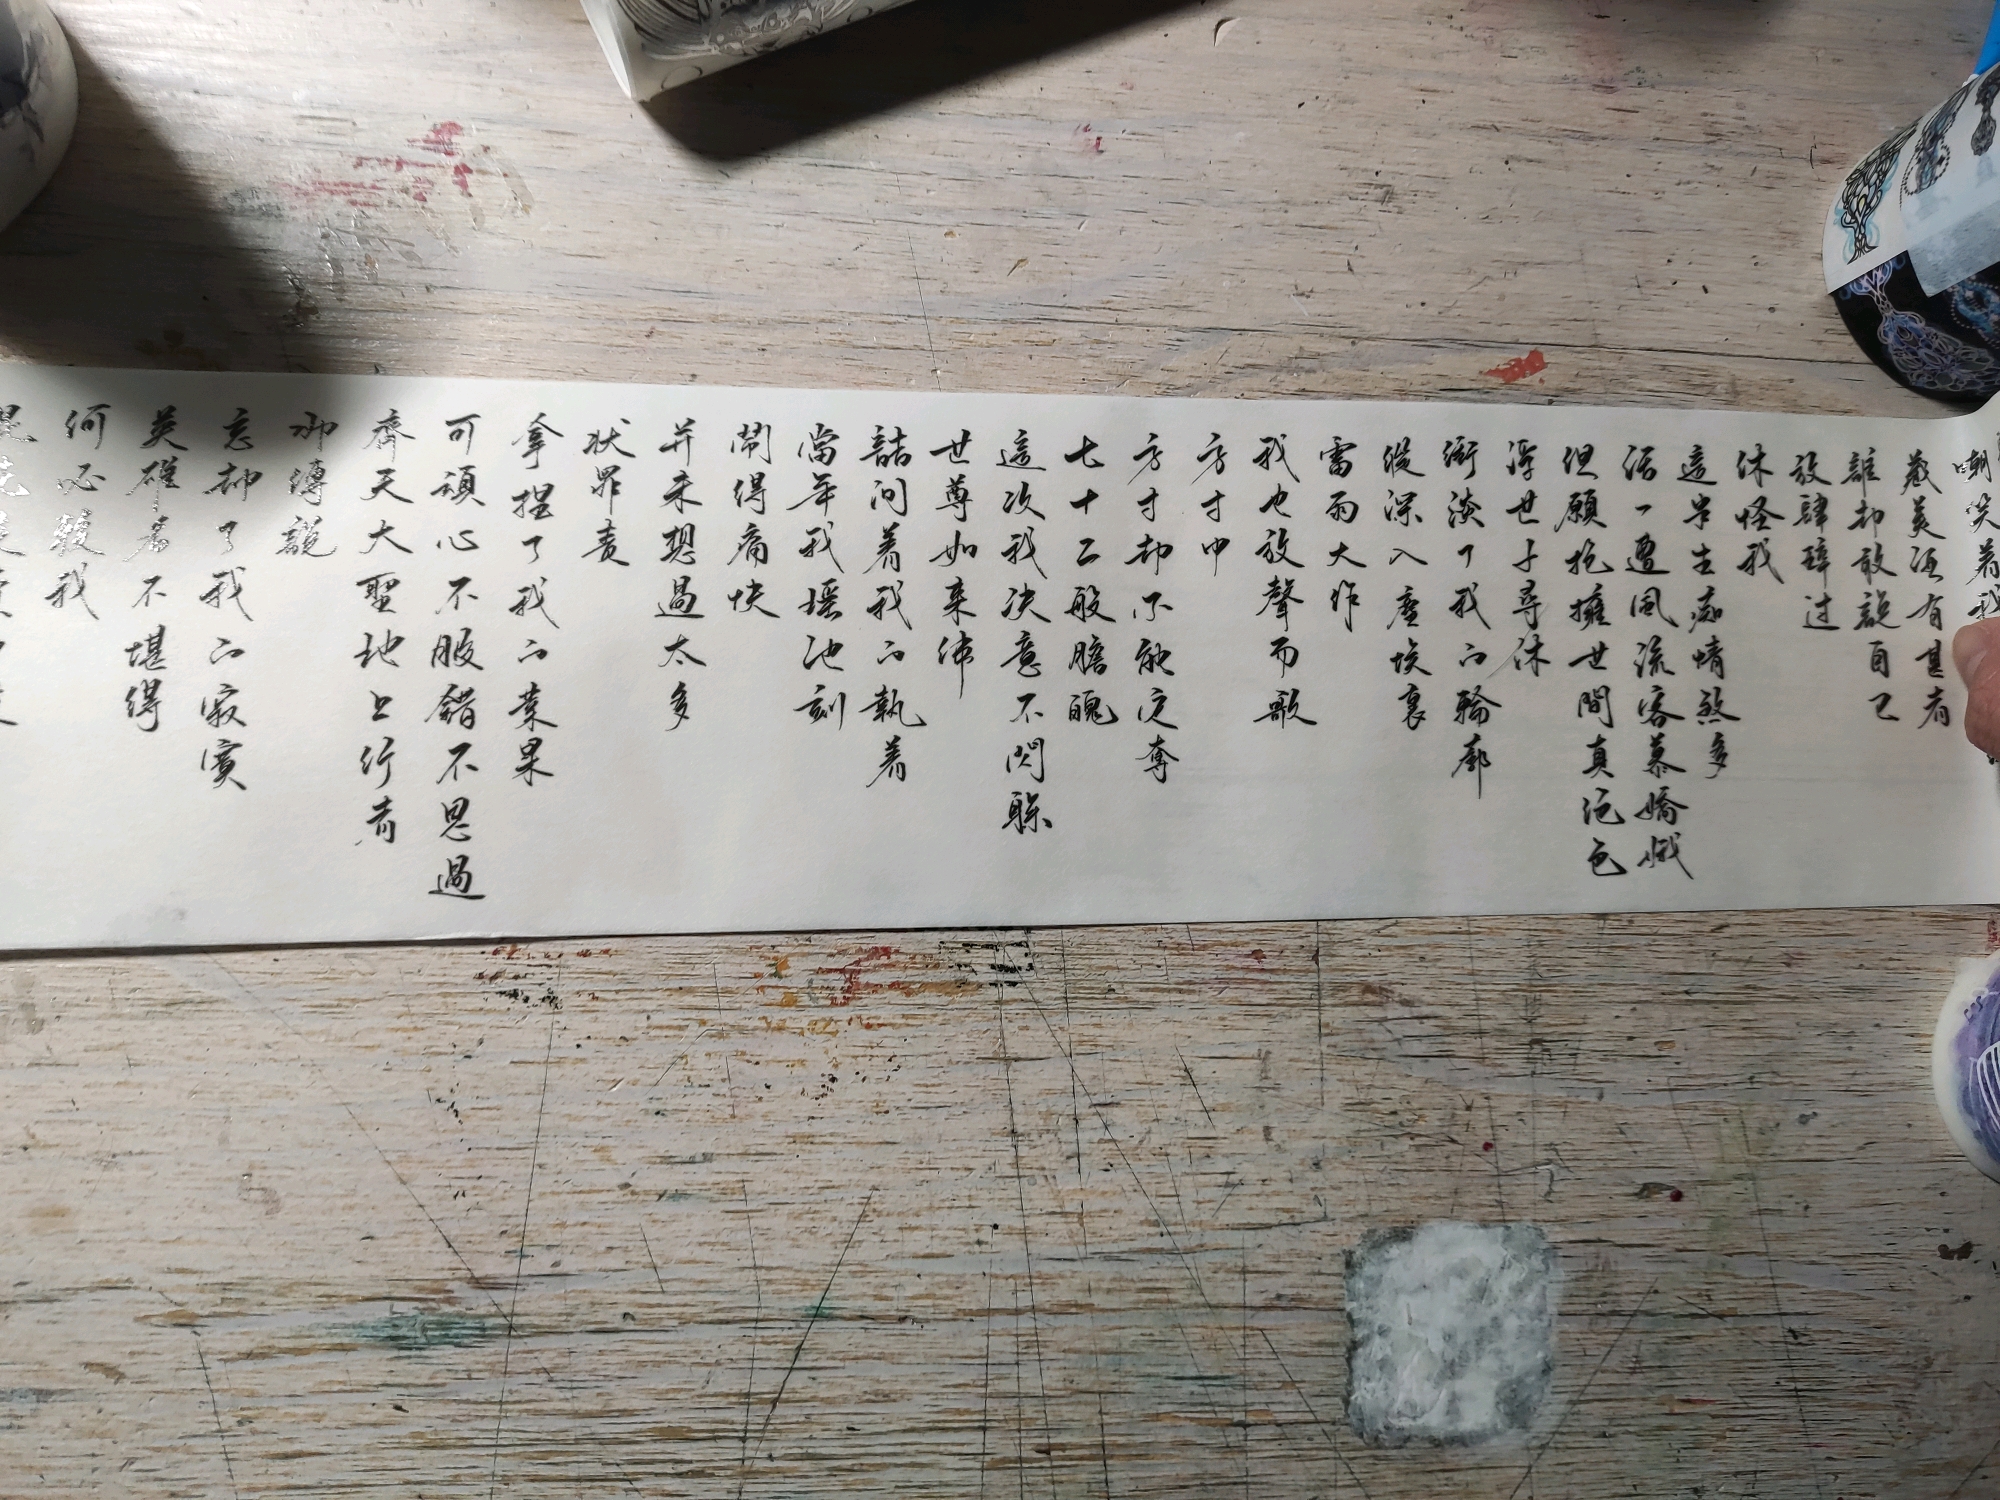 嘲笑着我
羨美酒有甚者
誰却敢說自己
放肆醉过
休怪我
這半生痴情煞多
活一遭風流客慕嬌娥
但願抱擁世間真絕色
浮世于尋休
衝淡了我的輪廓
縱深入塵埃裏
雷雨大作
我也放聲而歌
方寸中
方寸却不能定奪
七十二般膽魄
這次我决意不閃躲
世尊如来佛
詰問着我的執着
當年我瑶池刻
鬧得痛快
并未想過太多
状罪責
拿捏了我的業果
可頑心不服錯不思過
齊天大聖地上行者
御傳說
忘却了我的寂寞
英雄者不堪得
何必毀我